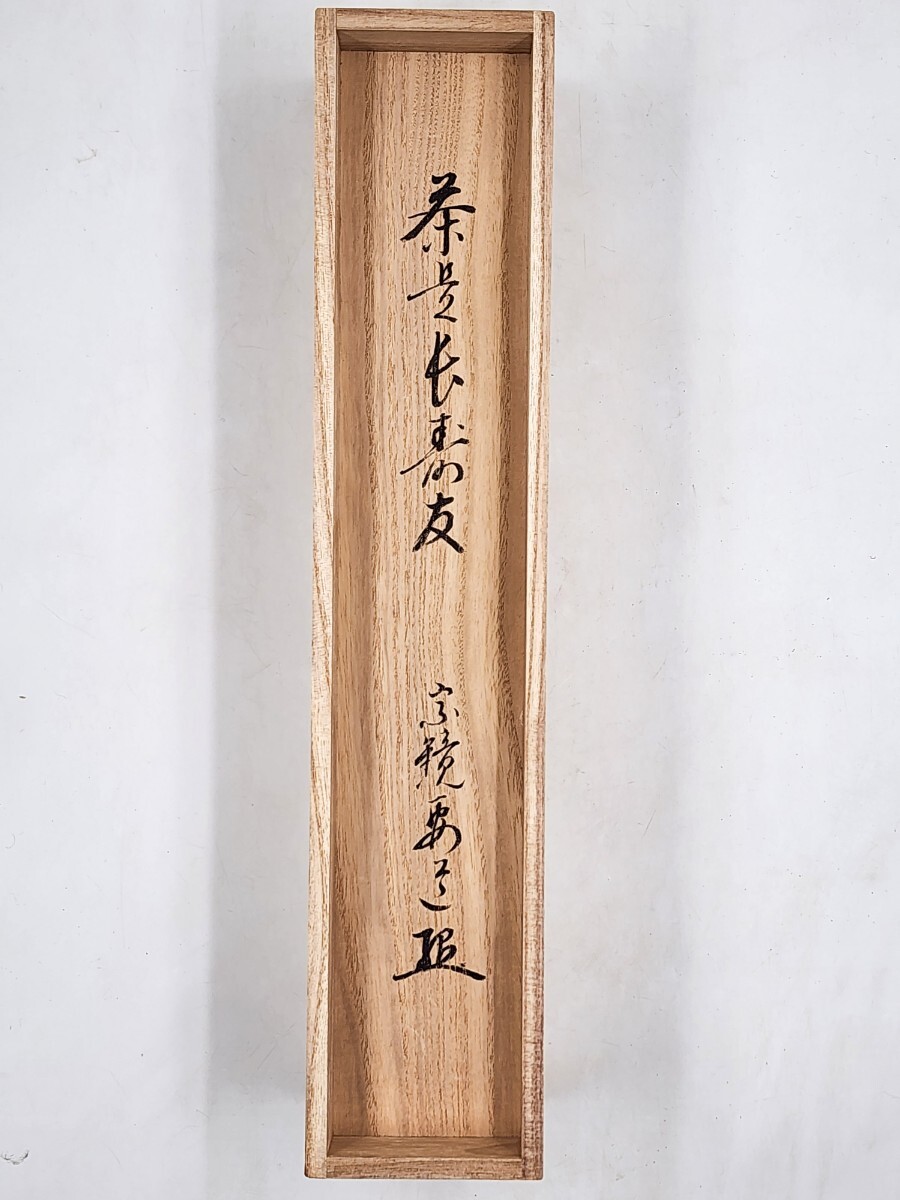 茶是長寿友 宗鏡要道題